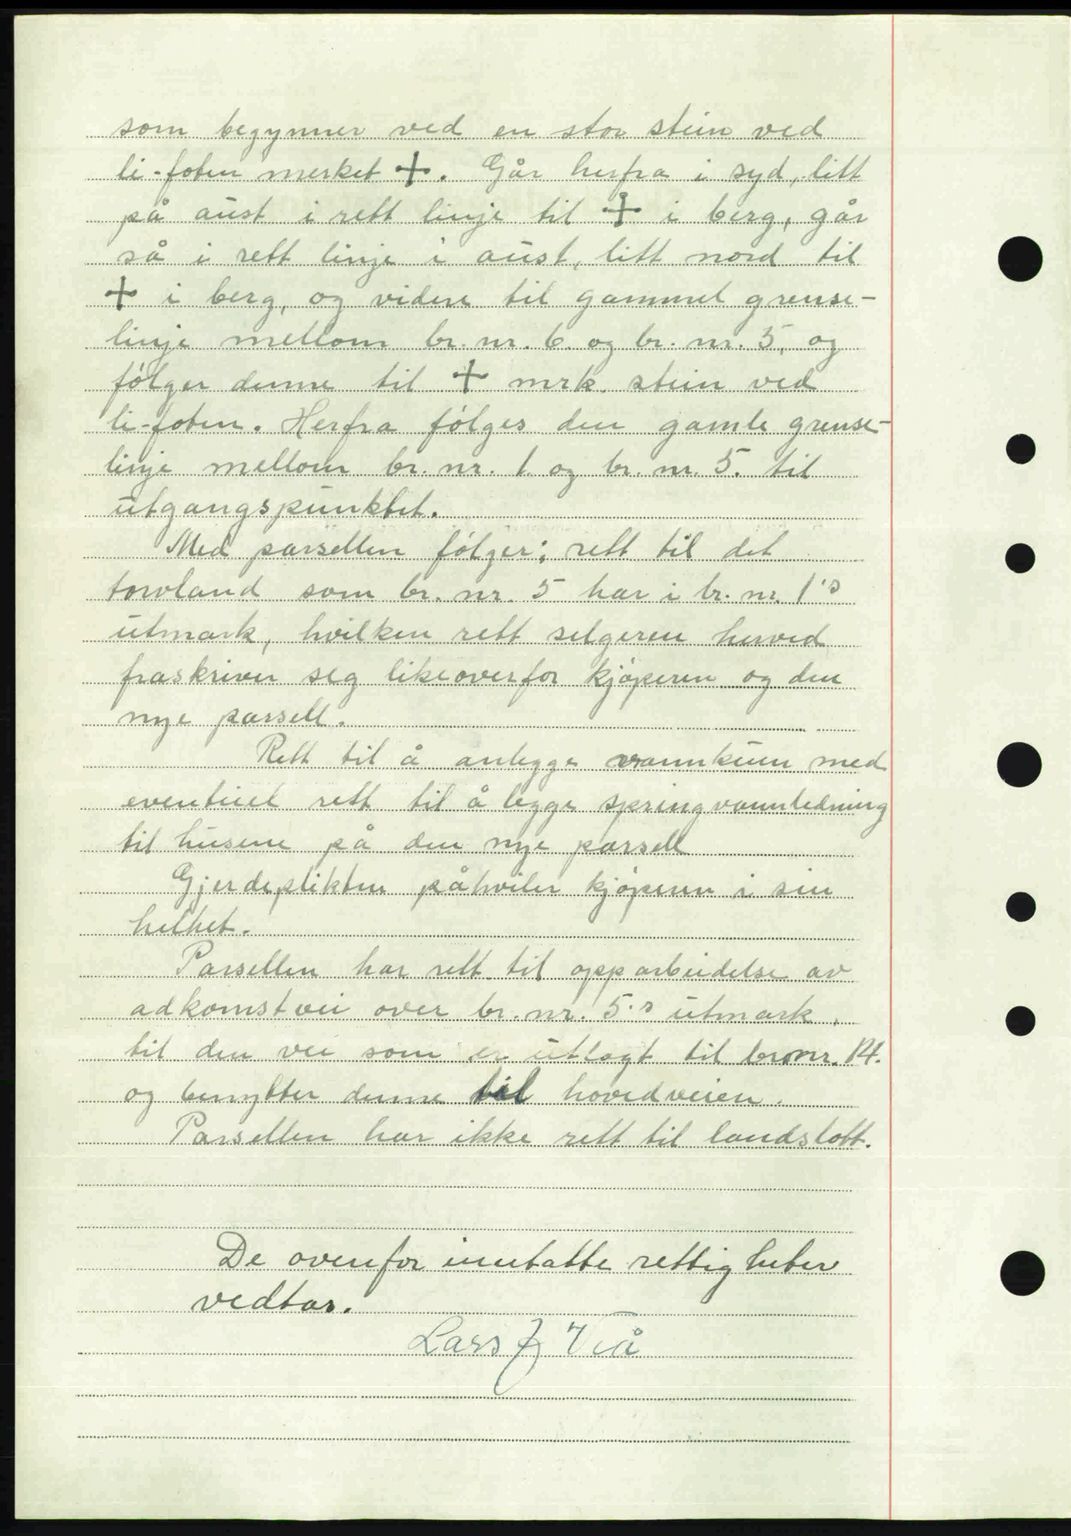 som begynner ved en stor stein ved
li-foten merket +. Går herfra i syd, litt
på aust i rett linje til + i berg, går
så i rett linje i aust, litt nord til
+ i berg, og videre til gammel grense-
linje mellom br. nr. 6. og br. nr. 5, og
følger denne til + mrk. stein ved
li-foten. Herfra følges den gamle grense-
linje mellom br. nr. 1 og br. nr. 5. til
utgangspunktet.
Med parsellen følger; rett til det
torvland som br. nr. 5 har i br. nr. 1's
utmark, hvilken rett selgeren herved
fraskriver seg likeoverfor kjøperen og den
nye parsell.
Rett til å anlegge vannkum med
eventuel rett til å legge springvannledning
til husene på den nye parsell
Gjerdeplikten påhviler kjøperen i sin
helhet.
Parsellen har rett til opparbeidelse av
adkomstvei over br. nr. 5's utmark,
til den vei som er utlagt til br. nr. 14.
og benytter denne til hovedveien.
Parsellen har ikke rett til landslott.
De ovenfor inntatte rettigheter
vedtas.
Lars J Viå